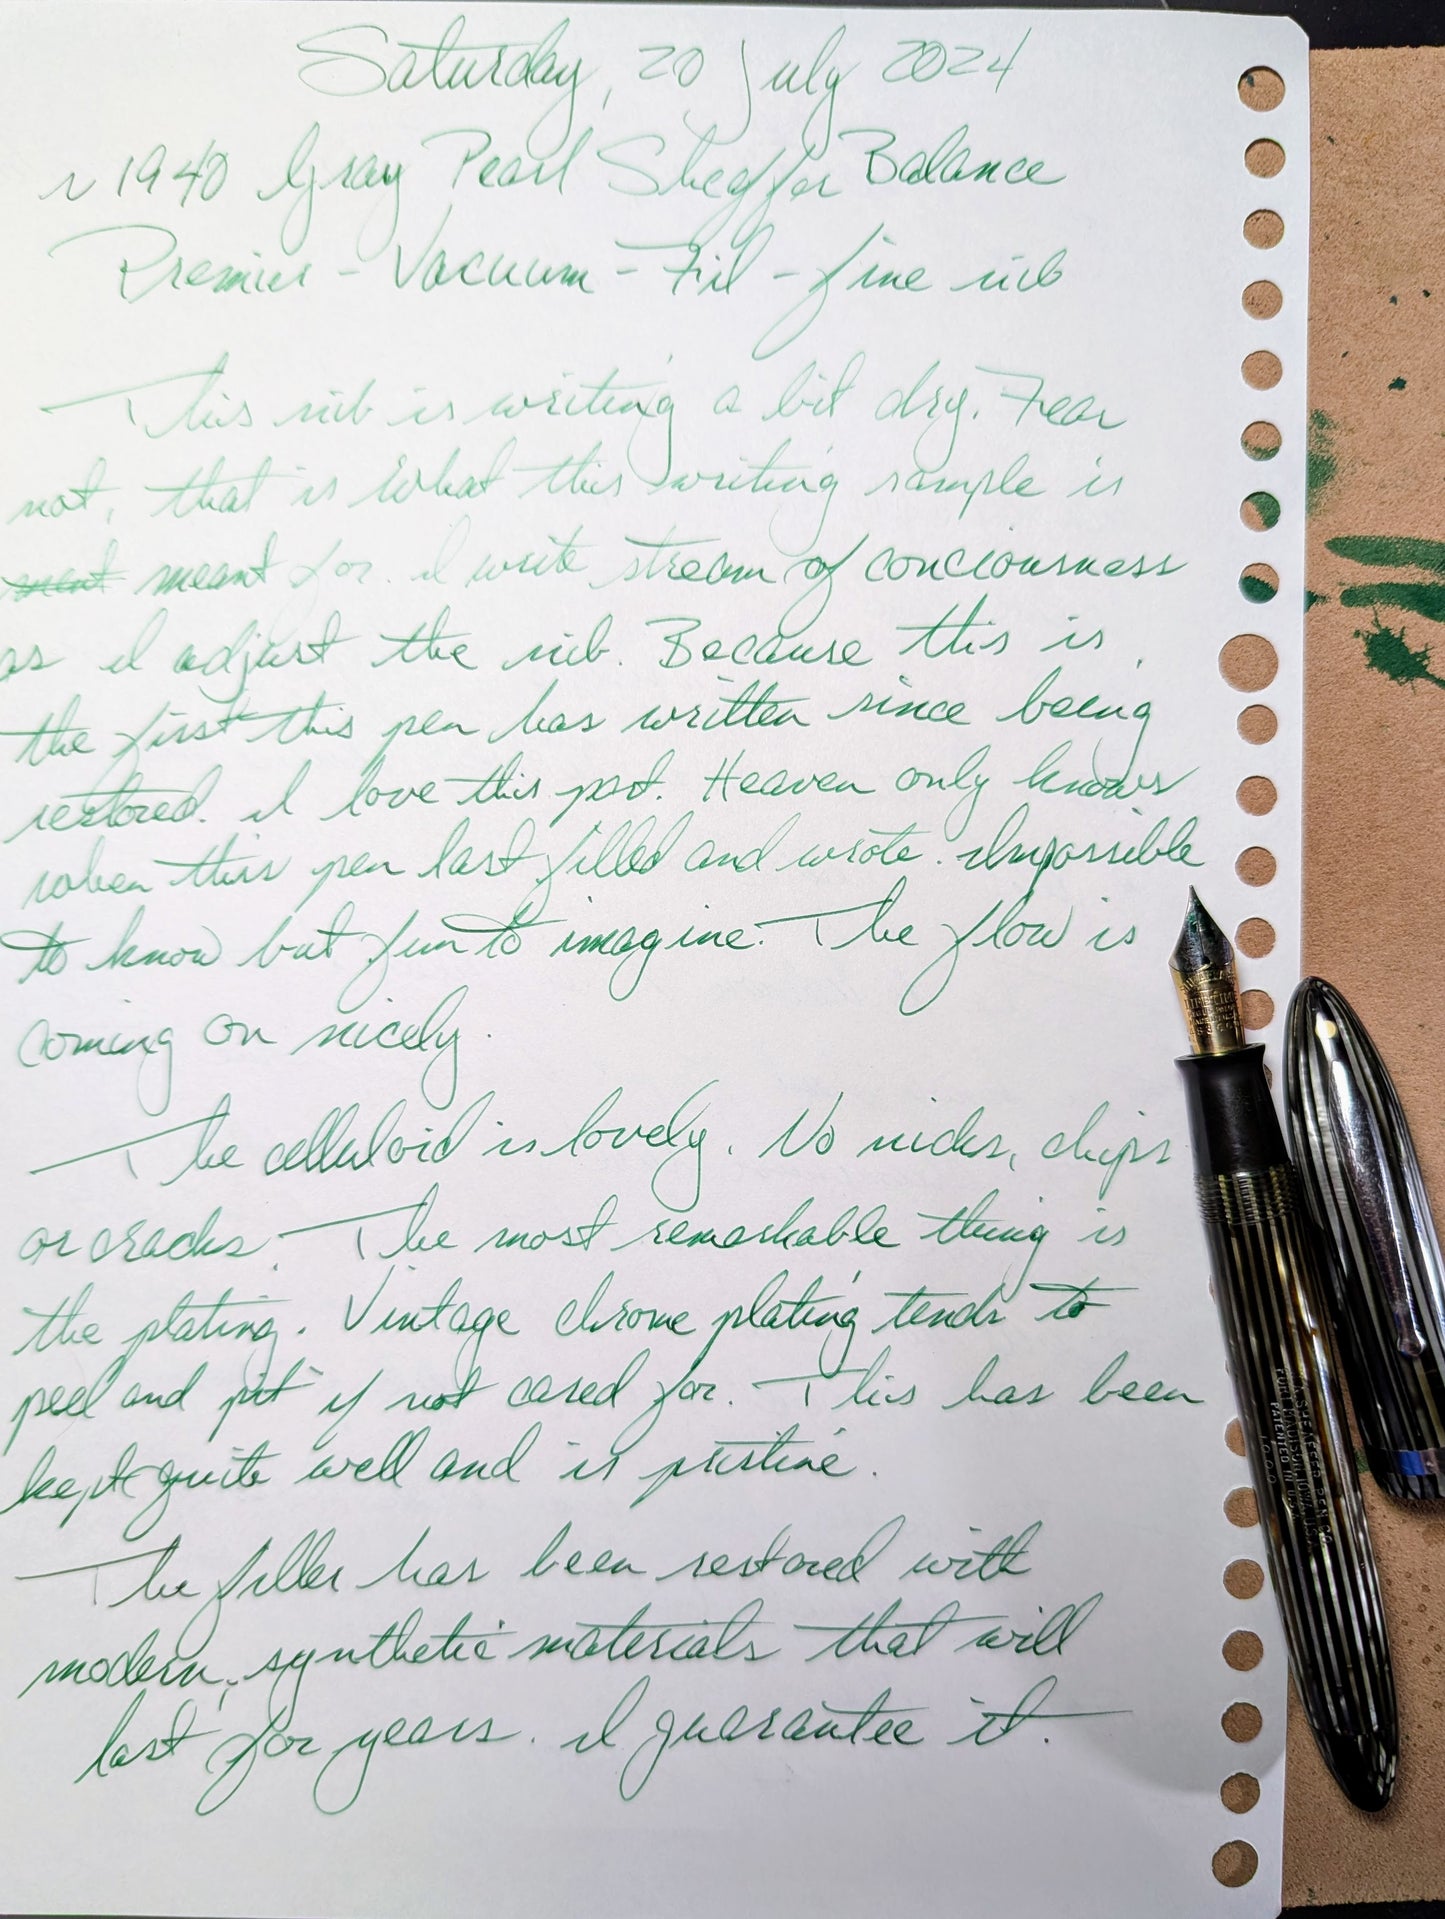 Saturday, 20 July 2024
~1940 Gray Pearl Sheaffer Balance
Premier - Vacuum-Fil - fine nib
This nib is writing a bit dry. Fear
not, that is what this writing sample is
ment meant for. I write stream of conciousness
as I adjust the nib. Because this is
the first this pen has written since being
restored. I love this part. Heaven only knows
when this pen last filled and wrote. Impossible
to know but fun to imagine. The flow is
coming on nicely.
The celluloid is lovely. No nicks, chips
or cracks. The most remarkable thing is
the plating. Vintage chrome plating tends to
peel and pit if not cared for. This has been
kept quite well and is pristine.
The filler has been restored with
modern, synthetic materials that will
last for years. I guarantee it.
LIFETIME
W.A. SHEAFFER PEN CO.
FORT MADISON, IOWA, U.S.A.
PATENTED IN U.S.A.
1000